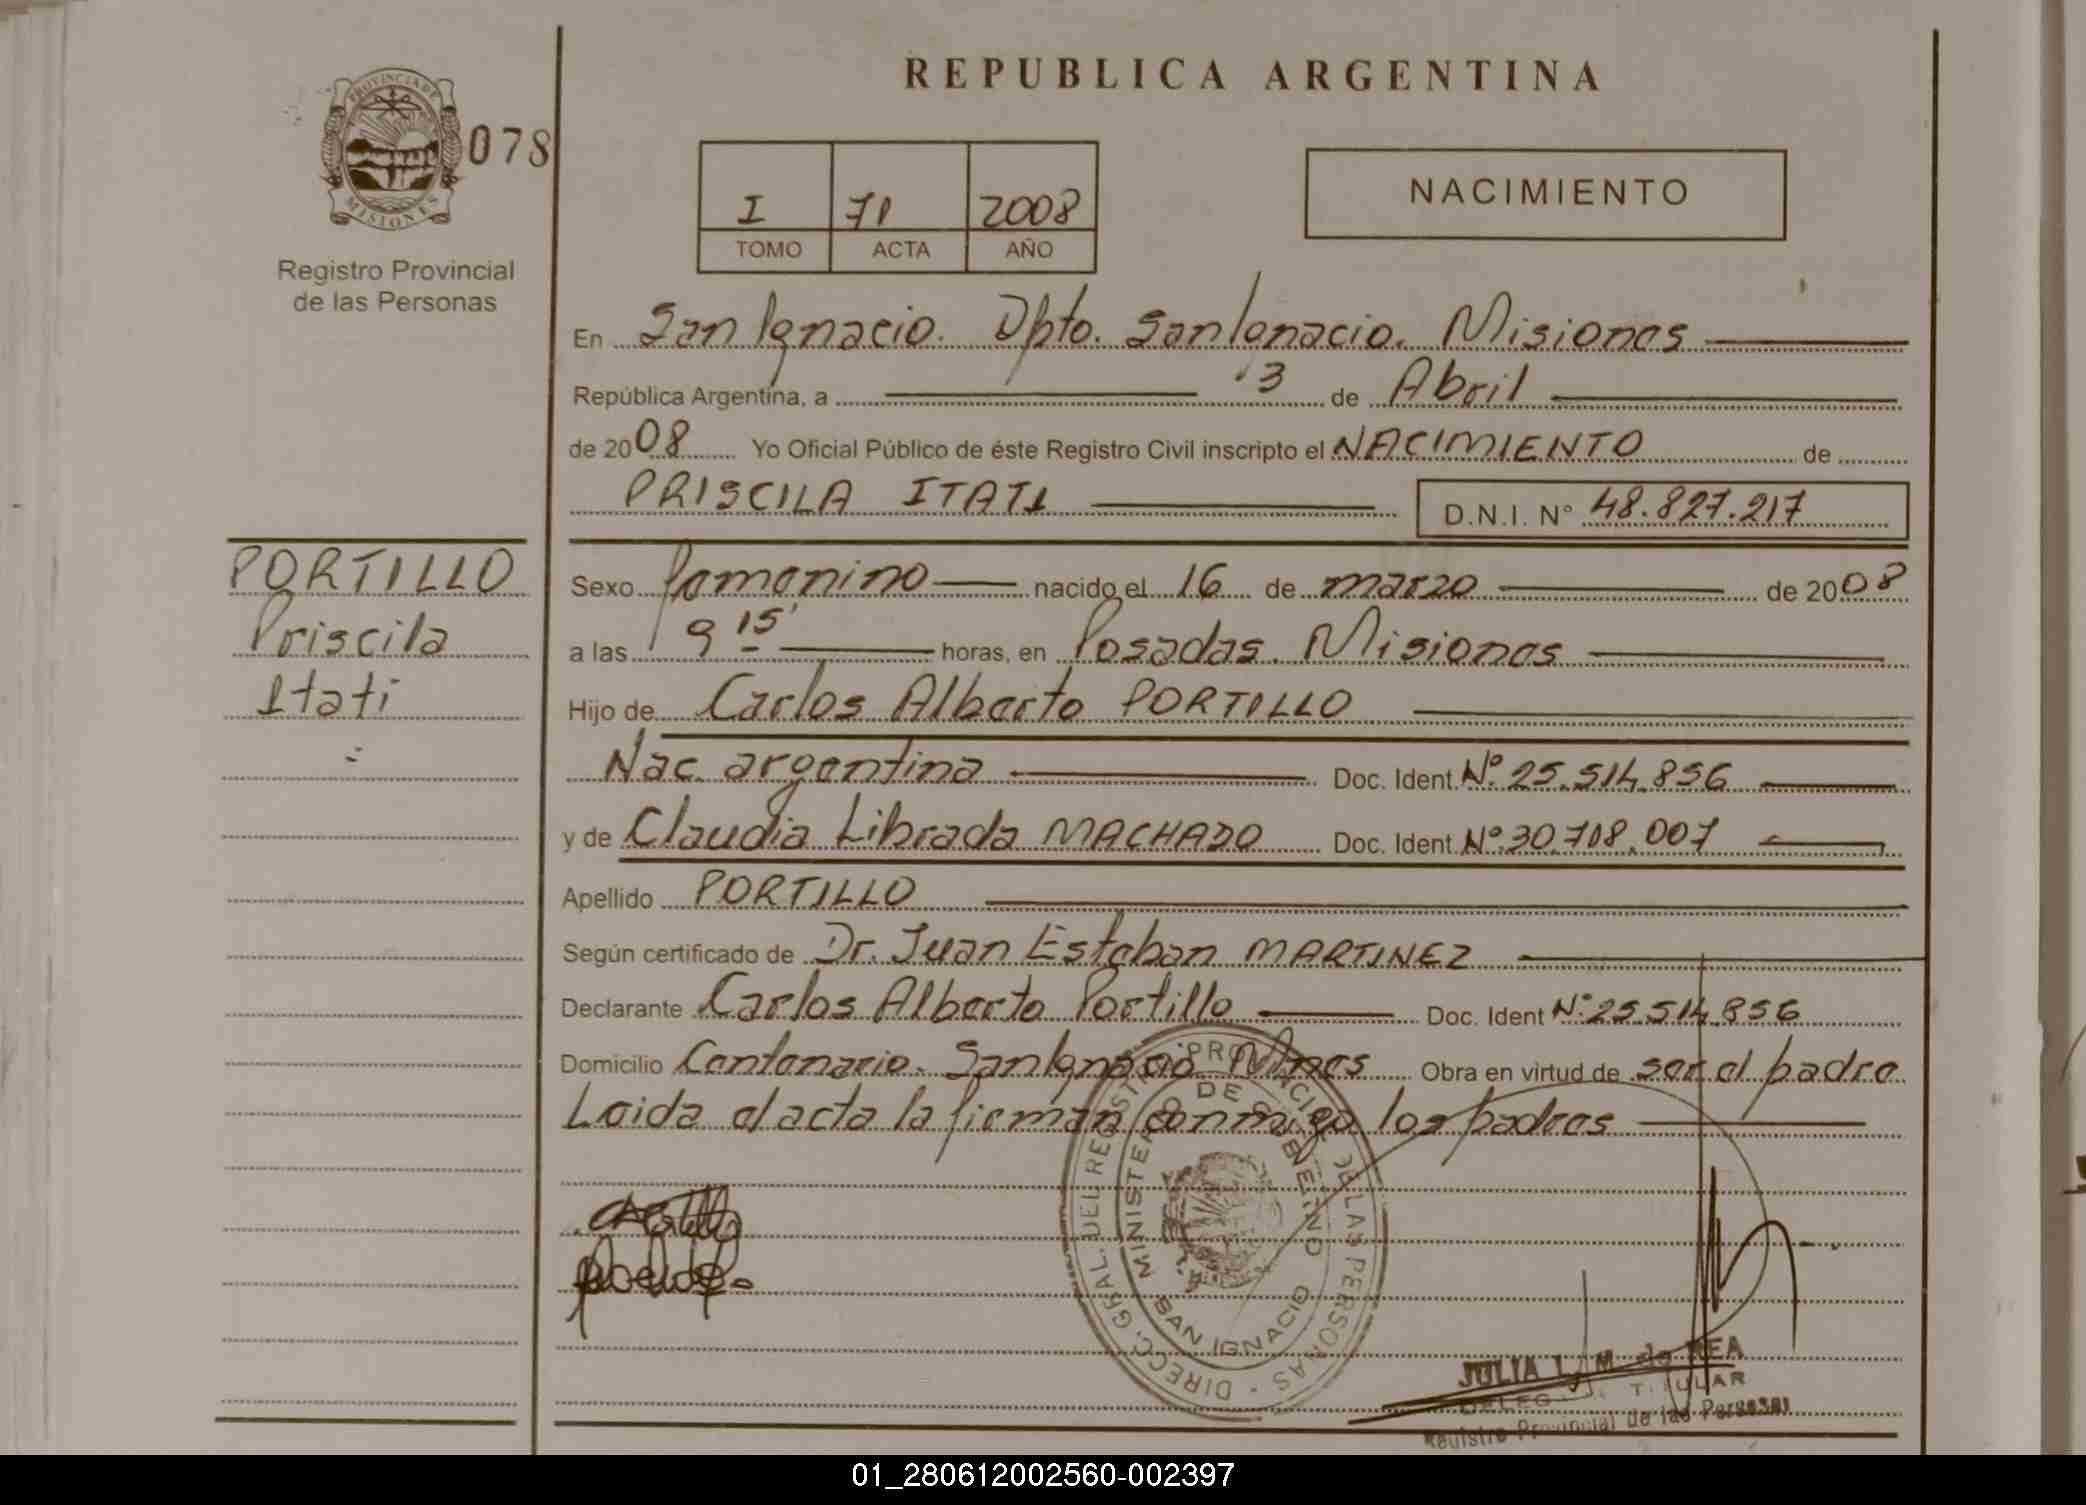 REPUBLICA ARGENTINA
PROVINCIA DE
MISIONES
078
Registro Provincial
de las Personas
I 71 2008
TOMO ACTA AÑO
NACIMIENTO
En San Ignacio. Dpto. San Ignacio. Misiones
República Argentina, a 3 de Abril
de 2008 Yo Oficial Público de éste Registro Civil inscripto el NACIMIENTO de
PRISCILA ITATI
D.N.I. N° 48.827.217
PORTILLO
Priscila
Itati
Sexo femenino nacido el 16 de marzo de 2008
a las 9 15' horas, en Posadas. Misiones
Hijo de Carlos Alberto PORTILLO
Nac. argentina Doc. Ident. N° 25.514.856
y de Claudia Librada MACHADO Doc. Ident. N° 30.708.007
Apellido PORTILLO
Según certificado de Dr. Juan Esteban MARTINEZ
Declarante Carlos Alberto Portillo Doc. Ident N° 25.514.856
Domicilio Centenario. San Ignacio Mnes Obra en virtud de ser el padre
Leida el acta la firman conmigo los padres
DIRECC. GRAL. DEL REGISTRO PROVINCIAL DE LAS PERSONAS
MINISTERIO DE GOBIERNO
SAN IGNACIO
JULIA L. M. de REA
DELEGADA TITULAR
Registro Provincial de las Personas
01_280612002560-002397